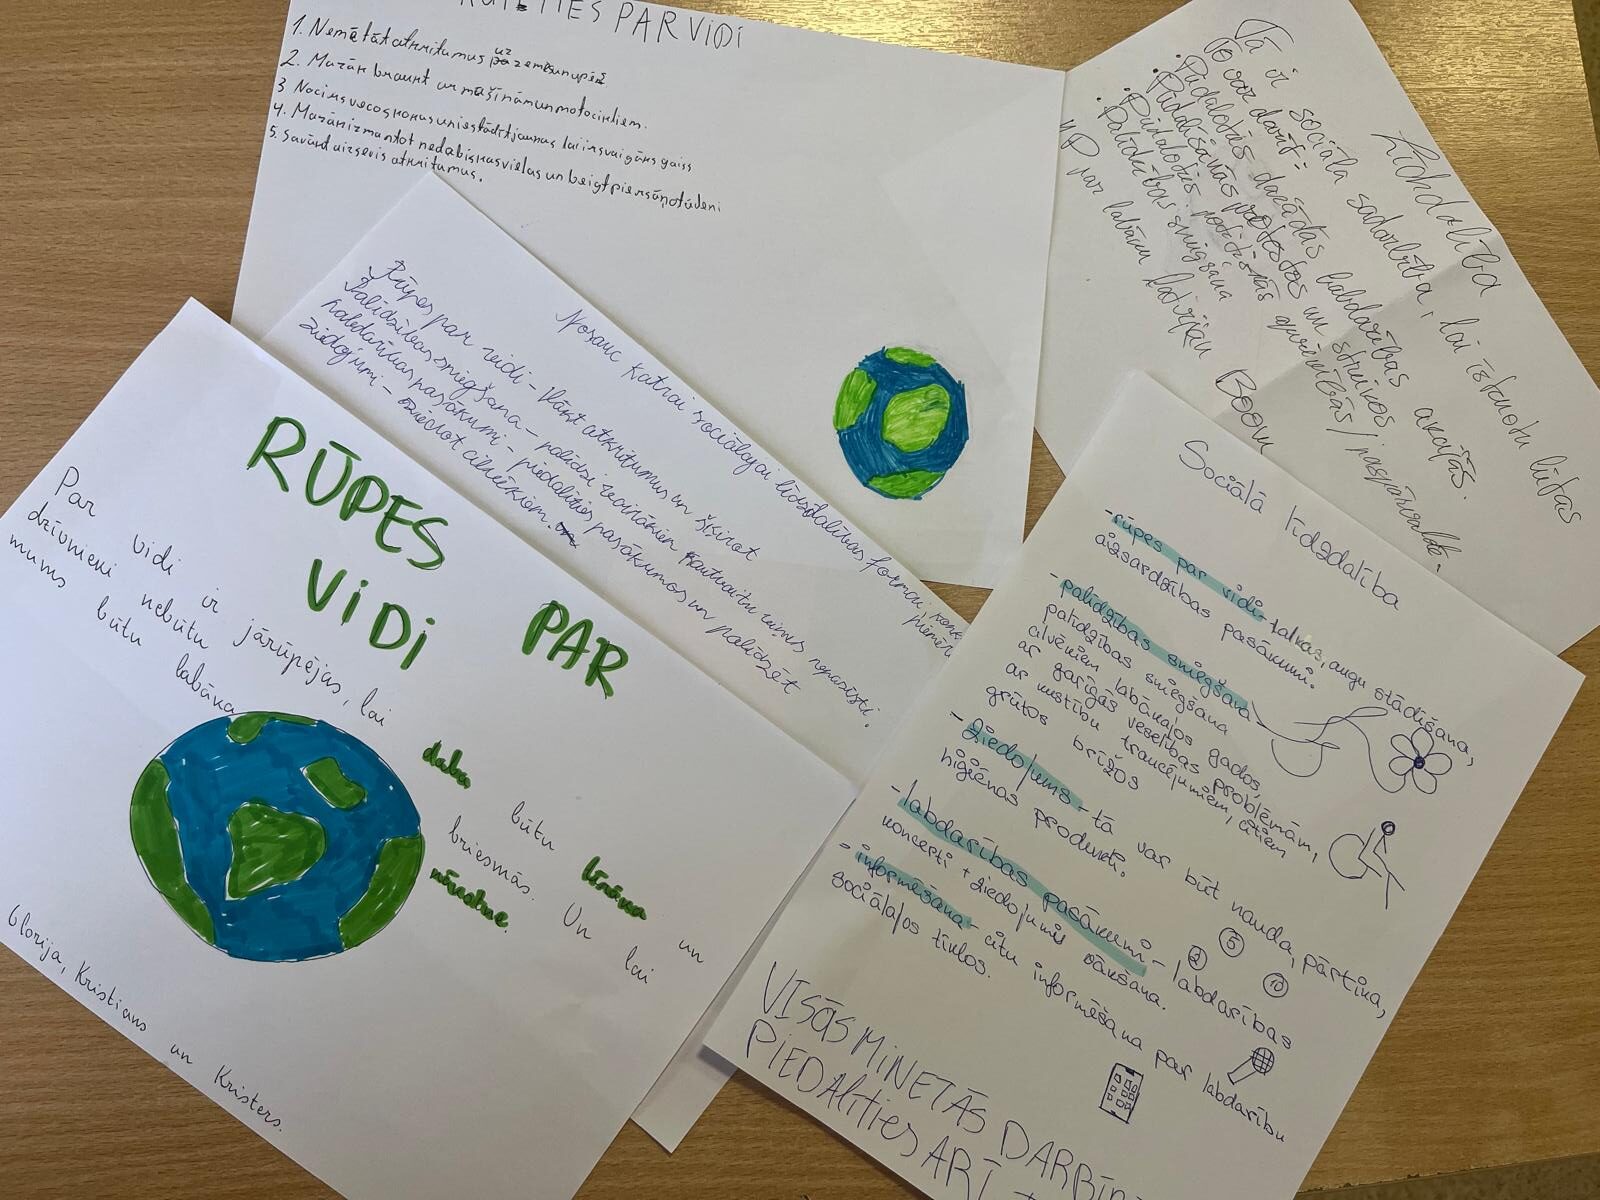 PAR VIDI
1. Nemētāt atkritumus uz zemes un upēs
2. Mazāk braukt ar mašīnām un motocikliem.
3 Nocirs vecos kokus un iestādīt jaunus lai ir svaigāks gaiss
4. Mazāk izmantot nedabiskas vielas un beigt piesārņot ūdeni
5. Savākt aizsevis atkritumus.
Līdzdalība
Tā ir sociāla sadarbība, lai īstenotu lietas
To var darīt:
• Piedaloties dažādās labdarības akcijās.
• Piedalīšanās protestos un streikos
• Piedaloties politiskās apvienībās / pašpārvaldē.
• Palīdzības sniegšana
Par labāku Latviju
Boom
Nosauc katrai sociālajai līdzdalības formai, konk
piemēr
Rūpes par vidi - Vākt atkritumus un šķirot
Palīdzības sniegšana - palīdzi vecītākiem
labdarības pasākumi - piedalīties pasākumos un palīdzēt
ziedojumi - ziedot cilvēkiem.
RŪPES PAR
VIDI
Par vidi ir jārūpējās, lai daba būtu tīrāka un
dzīvnieki nebūtu briesmās. Un lai
mums būtu labāka nākotne.
Glorija, Kristians un Kristers.
Sociālā līdzdalība
- rūpes par vidi - talkas, augu stādīšana,
aizsardzības pasākumi.
- palīdzības sniegšana -
palīdzības sniegšana
cilvēkiem labākajos gados,
ar garīgās veselības problēmām,
ar kustību traucējumiem, citiem
grūtos brīžos
- ziedojums - tā var būt nauda, pārtika,
higiēnas produkti.
2 5 10
- labdarības pasākumi - labdarības
koncerti + ziedojumu vākšana.
- informēšana - citu informēšana par labdarību
sociālajos tīklos.
VISĀS MINĒTĀS DARBĪ
PIEDALĪTIES ARĪ